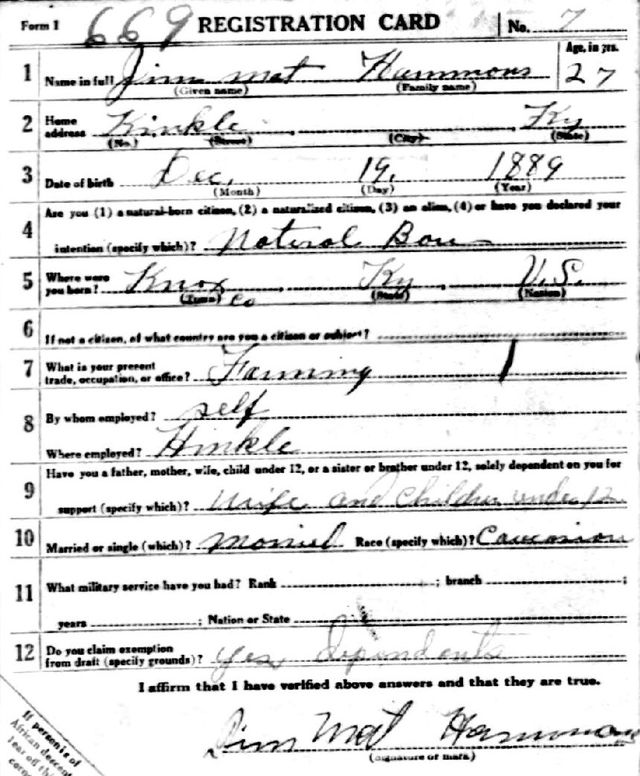 Form 1 669 REGISTRATION CARD No. 7
1 Name in full Jim Mat Hammons Age, in yrs. 27
(Given name) (Family name)
2 Home address Hinkle Ky
(No.) (Street) (City) (State)
3 Date of birth Dec, 19, 1889
(Month) (Day) (Year)
4 Are you (1) a natural-born citizen, (2) a naturalized citizen, (3) an alien, (4) or have you declared your
intention (specify which)? Natural Born
5 Where were you born? Knox Co Ky U.S.
(Town) (State) (Nation)
6 If not a citizen, of what country are you a citizen or subject?
7 What is your present trade, occupation, or office? Farming
8 By whom employed? self
Where employed? Hinkle
9 Have you a father, mother, wife, child under 12, or a sister or brother under 12, solely dependent on you for
support (specify which)? Wife and Children under 12
10 Married or single (which)? Married Race (specify which)? Caucasian
11 What military service have you had? Rank ; branch ;
years ; Nation or State
12 Do you claim exemption from draft (specify grounds)? Yes, dependents
I affirm that I have verified above answers and that they are true.
Jim Mat Hammons
(Signature or mark)
If person is of
African descent
tear off this